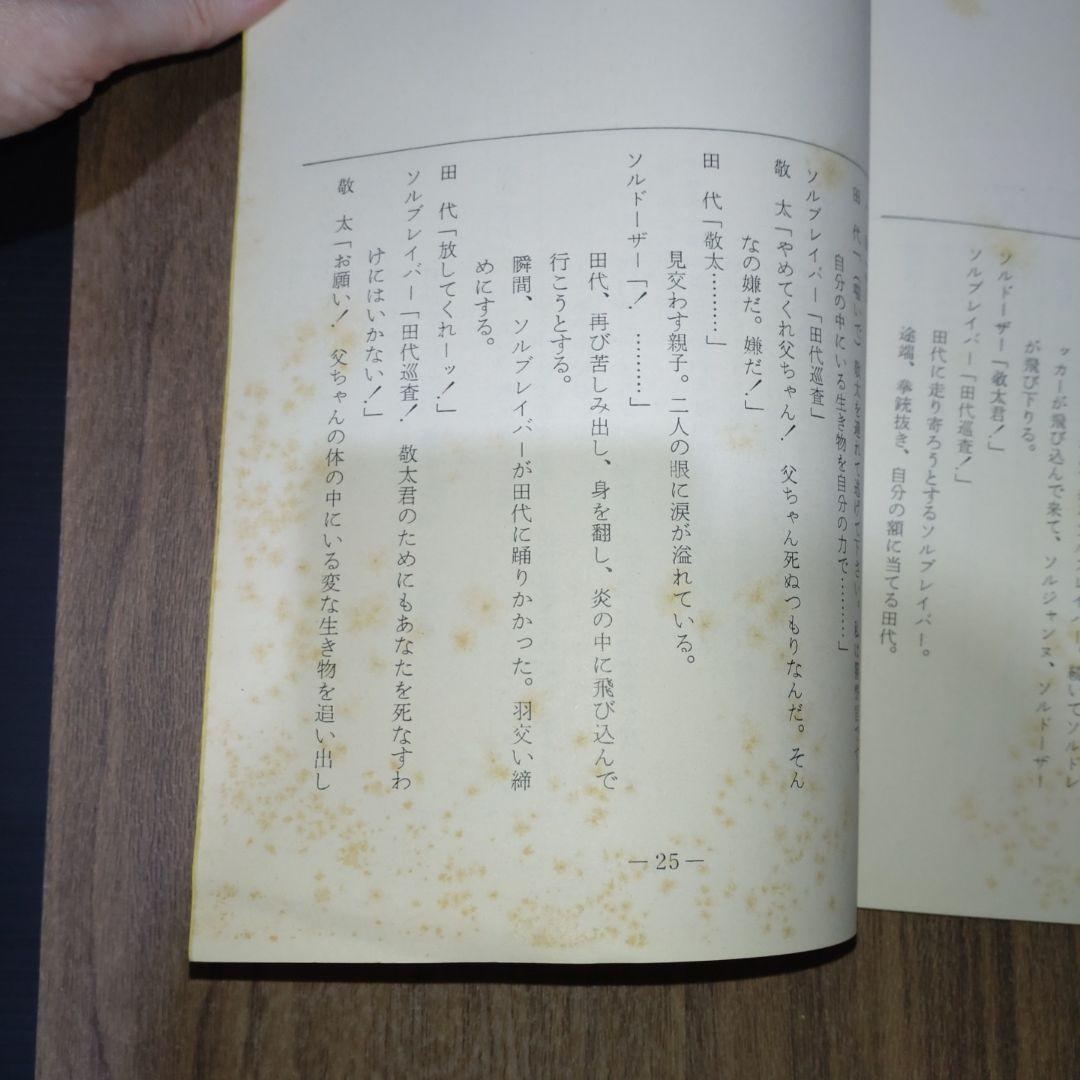 ッカーが飛び込んで来て、ソルジャンヌ、ソルドーザー
が飛び下りる。
ソルドーザー「敬太君！」
ソルブレイバー「田代巡査！」
田代に走り寄ろうとするソルブレイバー。
途端、拳銃抜き、自分の額に当てる田代。
自分の中にいる生き物を自分の力で………」
ソルブレイバー「田代巡査」
敬　太「やめてくれ父ちゃん！　父ちゃん死ぬつもりなんだ。そん
なの嫌だ。嫌だ！」
田　代「敬太…………」
見交わす親子。二人の眼に涙が溢れている。
ソルドーザー「！　…………」
田代、再び苦しみ出し、身を翻し、炎の中に飛び込んで
行こうとする。
瞬間、ソルブレイバーが田代に踊りかかった。羽交い締
めにする。
田　代「放してくれーッ！」
ソルブレイバー「田代巡査！　敬太君のためにもあなたを死なすわ
けにはいかない！」
敬　太「お願い！　父ちゃんの体の中にいる変な生き物を追い出し
— 25 —